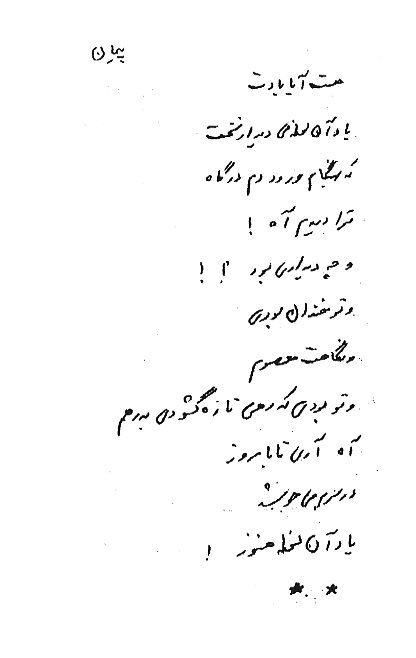 پیمان
هست آیا یادت
یاد آن لحظه‌ی دیدار نخست
که هنگام ورود دم درگاه
ترا دیدم آه !
و چه دیداری بود ؟! !
و تو خندان بودی
و نگاهت معصوم
و تو بودی که رهی تازه گشودی به رهم
آه آری تا به امروز
در سرم می‌جوشد
یاد آن لحظه هنوز !
* *